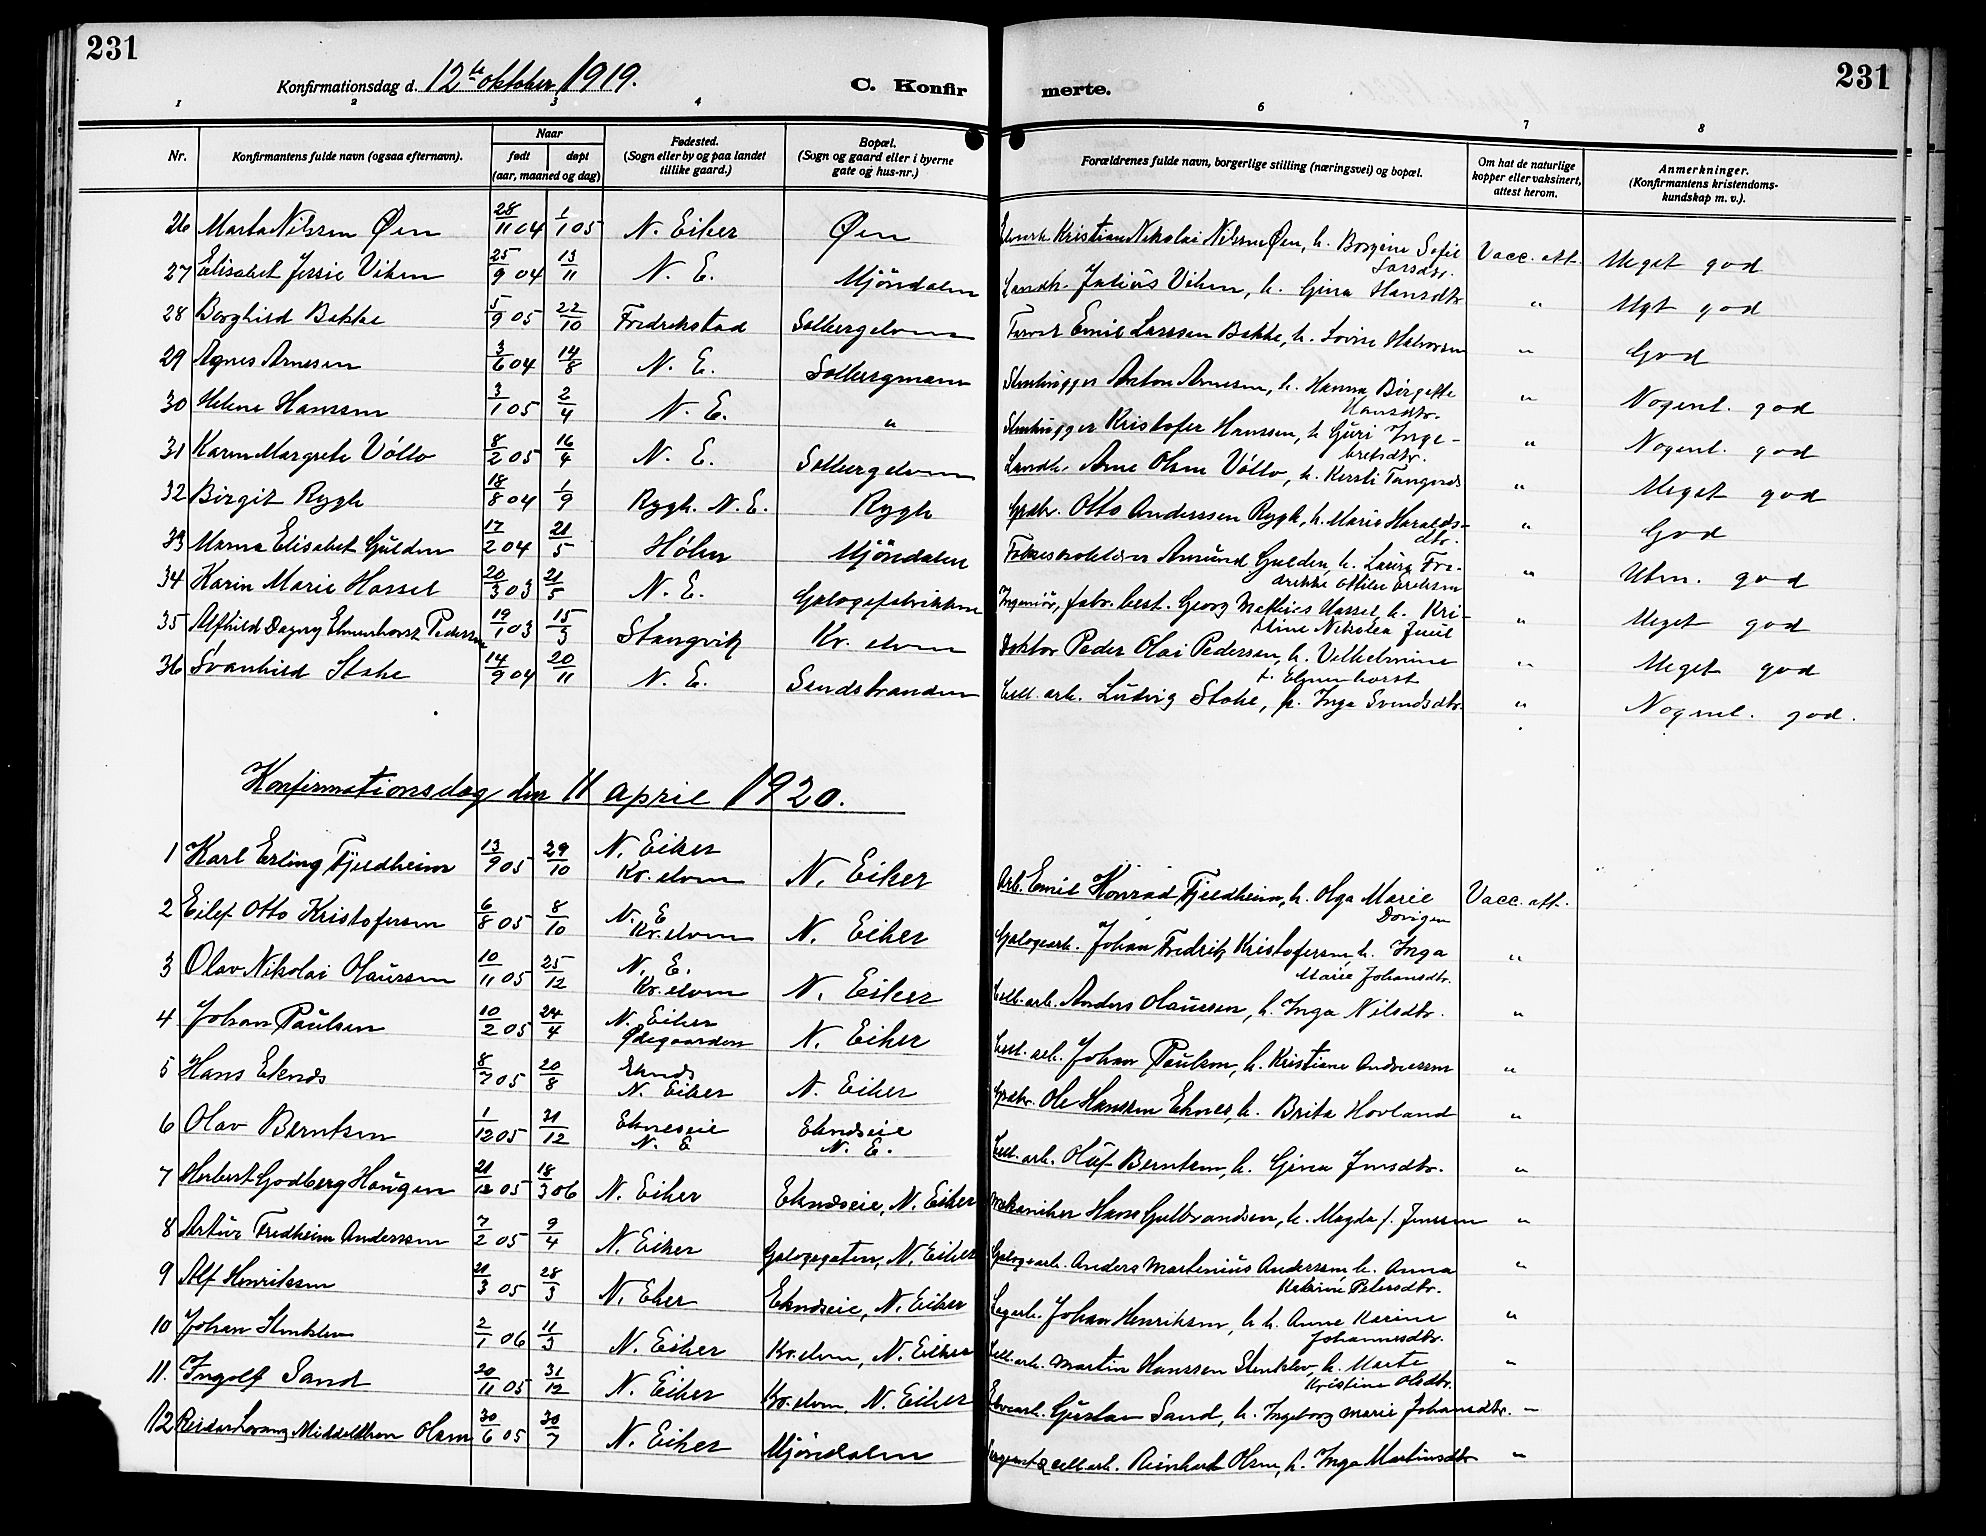 231
231
Konfirmationsdag d. 12te oktober 1919.
C. Konfirmerte.
1 2 3 4 6 7 8
Nr.
Konfirmantens fulde navn (ogsaa efternavn).
Naar
født døpt
(aar, maaned og dag)
Fødested.
(Sogn eller by og paa landet
tillike gaard.)
Bopæl.
(Sogn og gaard eller i byerne
gate og hus-nr.)
Forældrenes fulde navn, borgerlige stilling (næringsvei) og bopæl.
Om hat de naturlige
kopper eller vaksinert,
attest herom.
Anmerkninger.
(Konfirmantens kristendoms-
kundskap m. v.).
26 Marta Nilssen Øen 28/11 04 1/1 05 N. Eiker Øen Kristian Nikolai Nilssen Øen, h. Borgine Sofie Larsdtr. Vacc. att. Meget god
27 Elisabet Jessie Viken 25/9 04 13/11 N. E. Mjöndalen Landh. Julius Viken, h. Gina Hansdtr " Mgt god
28 Borghild Bakke 5/9 05 22/10 Fredrekstad Solbergelven Emil Larssen Bakke, h. Lovise Halvorsen " God
29 Agnes Arnesen 3/6 04 14/8 N. E. Solbergmoen Stenhugger Anton Arnesen, h. Hanna Birgitte Hansdtr. " Nogenl. god
30 Helene Hanssen 3/1 05 2/4 N. E. " Stenhugger Kristofer Hanssen, h. Guri Ingebretsdtr. " Nogenl. god
31 Karen Margrete Vóllo 8/2 05 16/4 N. E. Solbergelven Landh. Arne Olsen Vóllo, h. Kersti Tangerås " Meget god
32 Birgit Rygh 18/8 04 1/9 Rygh. N. E. Rygh Grdbr. Otto Anderssen Rygh, h. Marie Haraldsdtr. " God
33 Marna Elisabet Gulden 17/2 04 21/5 Hólen Mjöndalen Amund Gulden, h. Laura Fredrikke Ottilie Eriksen " Utm. god
34 Karin Marie Hassel 20/3 03 21/5 N. E. Galogefabrikken Ingeniör, fabr. best. Georg Mathias Hassel, h. Kristine Nikolea Juul " Meget god
35 Alfhild Dagny Elmenhorst Pedersen 19/1 03 15/3 Stangvik Kr. elven Doktor Peder Olai Pedersen, h. Vilhelmine f. Elmenhorst " Meget god
36 Svanhild Stake 14/9 04 20/11 N. E. Sandstranden Cell. arb. Ludvig Stake, h. Inga Svendsdtr. " Nogenl. god.
Konfirmationsdag den 11 april 1920.
1 Karl Erling Fjeldheim 13/9 05 29/10 N. Eiker Kr. elven N. Eiker Arb. Emil Konrad Fjeldheim, h. Olga Marie Vacc. att.
2 Eilef Otto Kristofersen 6/8 05 8/10 N. E Kr. elven N. Eiker Galogearb. Johan Fredrik Kristofersen, h. Inga Marie Johansdtr. "
3 Olav Nikolai Olaussen 10/11 05 25/12 N. E. Kr. elven N. Eiker Cell. arb. Anders Olaussen, h. Inga Nilsdtr. "
4 Johan Paulsen 10/2 05 24/4 N. Eiker Ödegaarden N. Eiker Cell. arb. Johan Paulsen, h. Kristiane Andreassen "
5 Hans Eknes 8/7 05 20/8 Eknes N. Eiker N. Eiker Grdbr. Ole Hanssen Eknes, h. Brita Hovland "
6 Olav Berntsen 1/12 05 31/12 Ekneseie N. E Ekneseie N. E. Cell. arb. Oluf Berntsen, h. Gina Jensdtr. "
7 Herbert Godberg Haugen 21/12 05 18/3 06 N. Eiker Ekneseie, N. Eiker Mekaniker Hans Gulbrandsen, h. Magda f. Jenssen "
8 Artur Fredheim Anderssen 7/2 05 9/4 N. Eiker Galogegaten, N. Eiker Galogearb. Anders Martinius Anderssen h. Anna Katrine Petersdtr. "
9 Alf Henriksen 21/3 05 28/3 N. Eker Ekneseie, N. Eiker Johan Henriksen, h. h. Anne Karine Johannesdtr. "
10 Johan Stenklev 2/1 06 11/3 N. Eiker Kr. elven, N. Eiker Cell. arb. Martin Hanssen Stenklev, h. Marte Kristine Olsdtr. "
11. Ingolf Sand 20/11 05 31/12 N. Eiker Kr. elven, N. Eiker Gustav Sand, h. Ingeborg Marie Johansdtr. "
12 Reidar Middelthon Olsen 30/6 05 30/7 N. Eiker Mjöndalen cell. arb. Reinhard Olsen, h. Inga Martinsdtr "